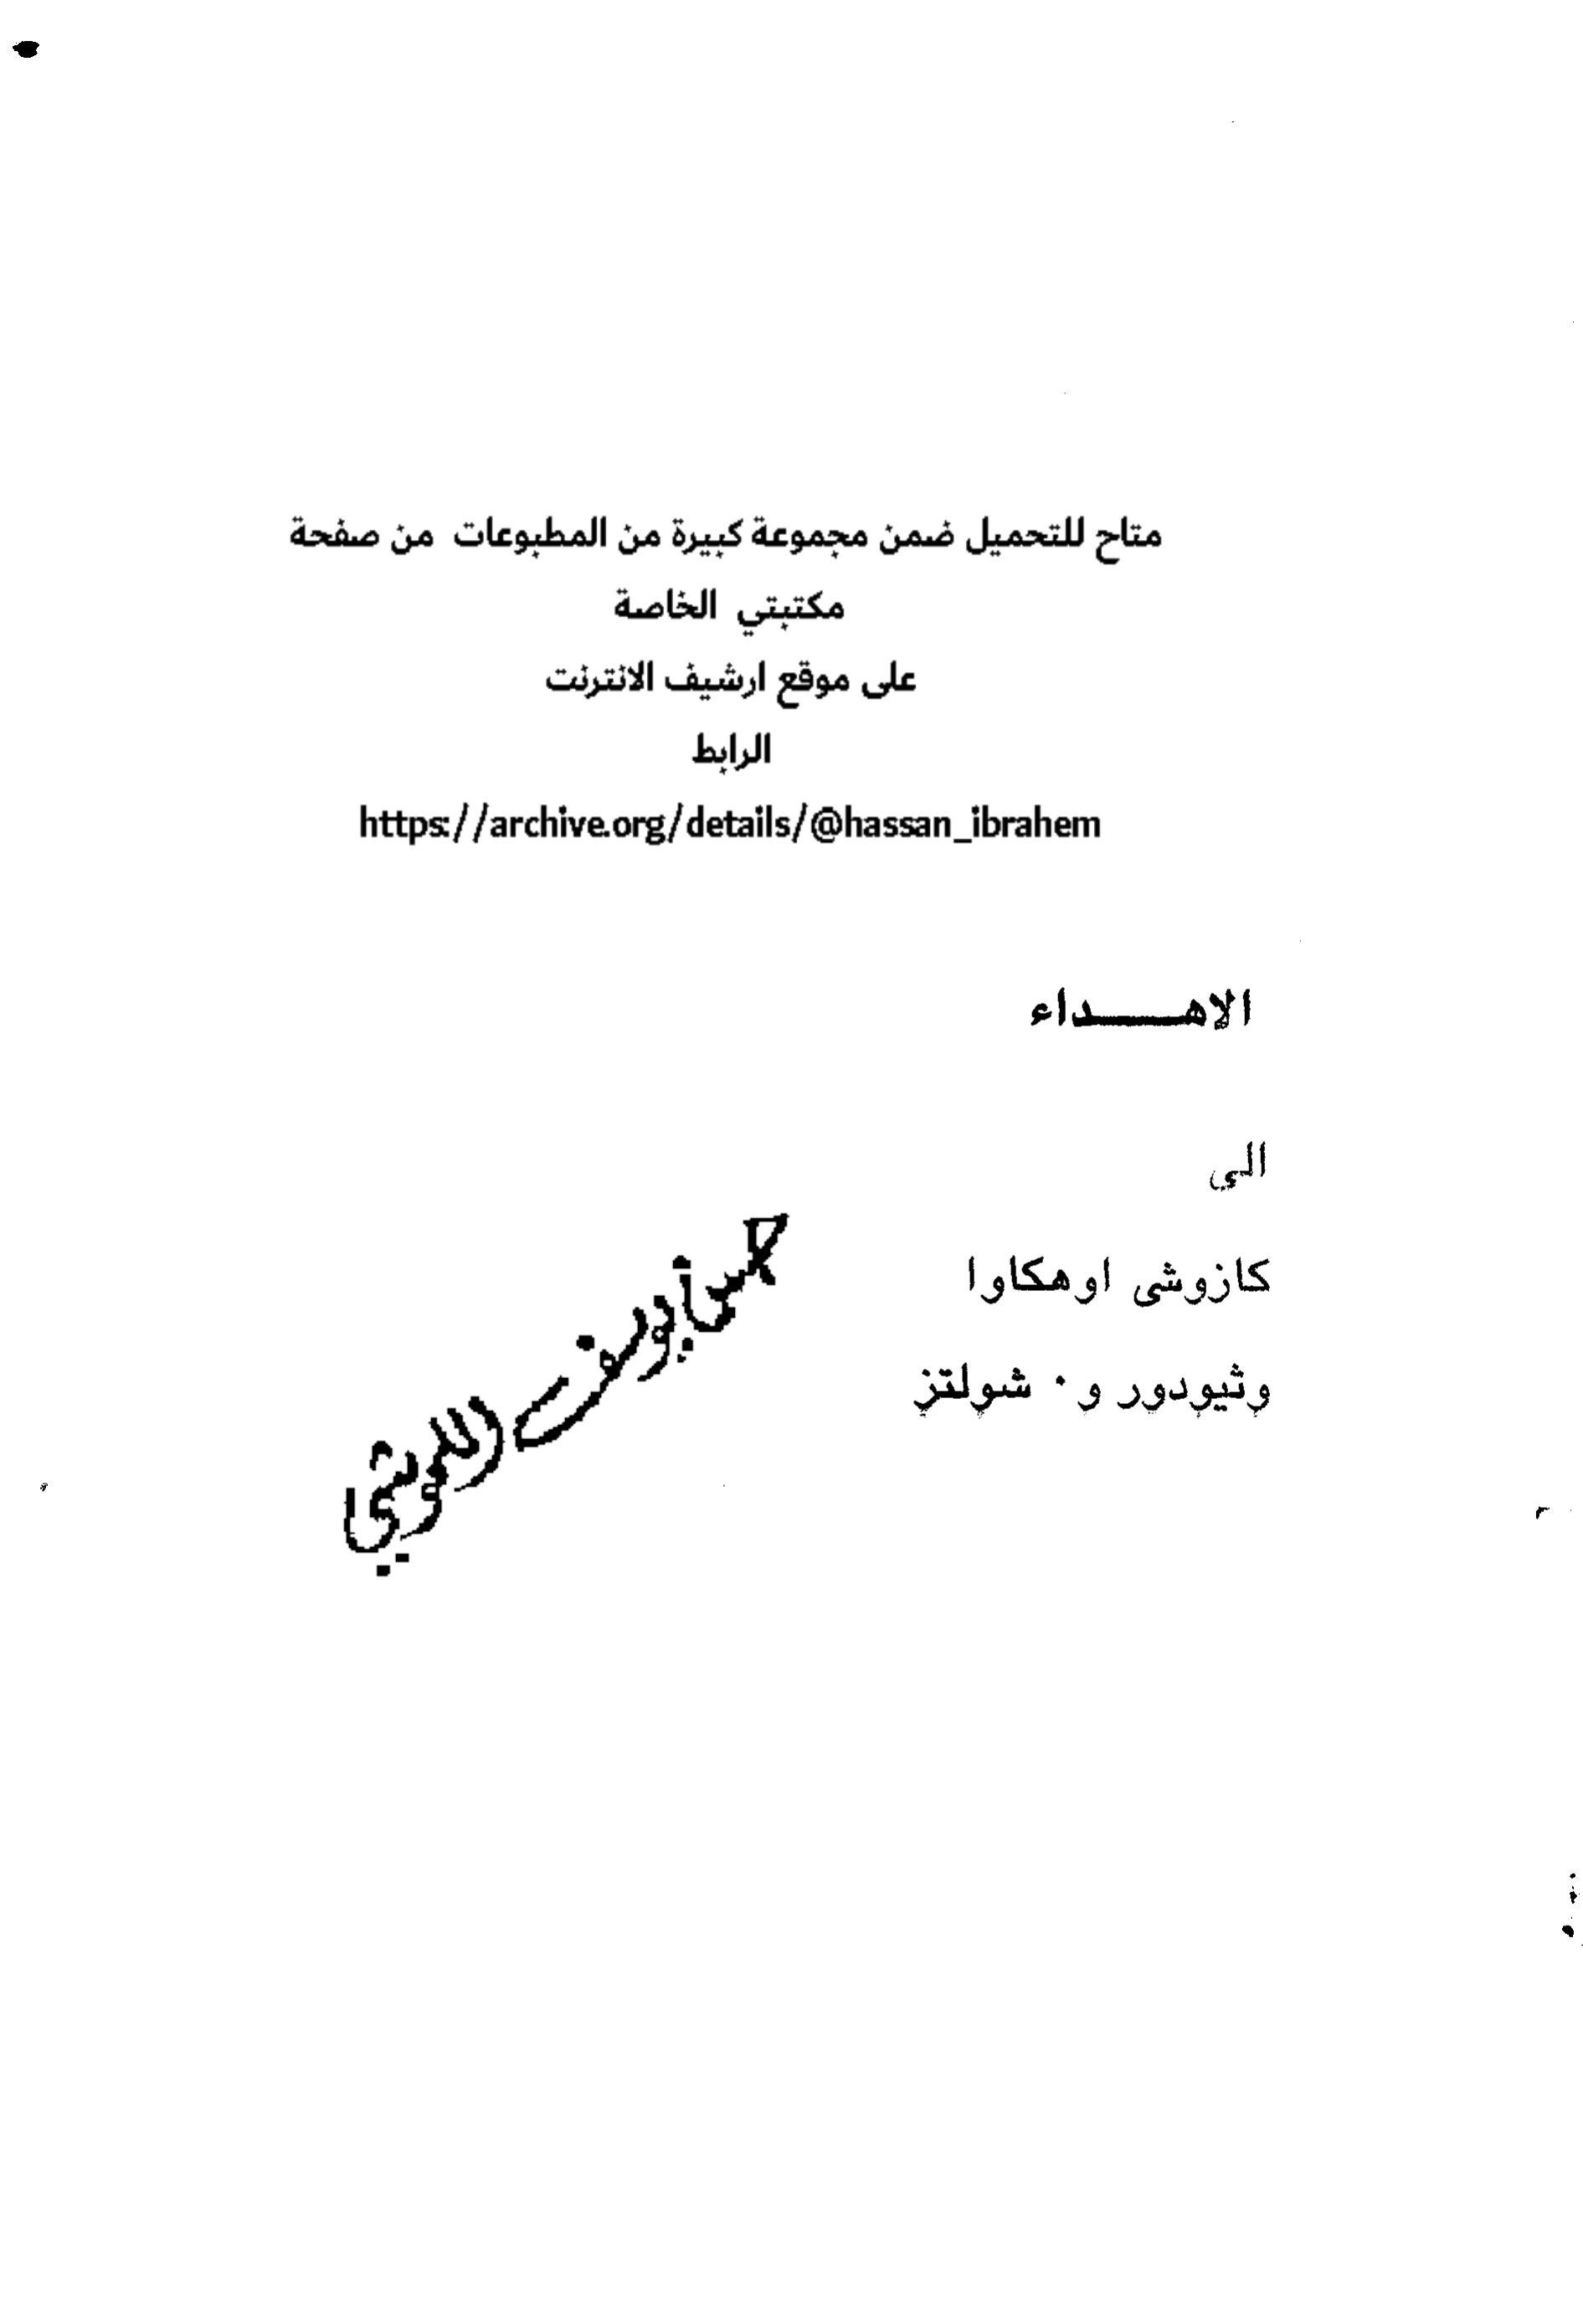 متاح للتحميل ضمن مجموعة كبيرة من المطبوعات من صفحة
مكتبتي الخاصة
على موقع ارشيف الانترنت
الرابط
https://archive.org/details/@hassan_ibrahem
الاهـــداء
الى
كازوشى اوهكاوا
وثيودور و٠ شولتز